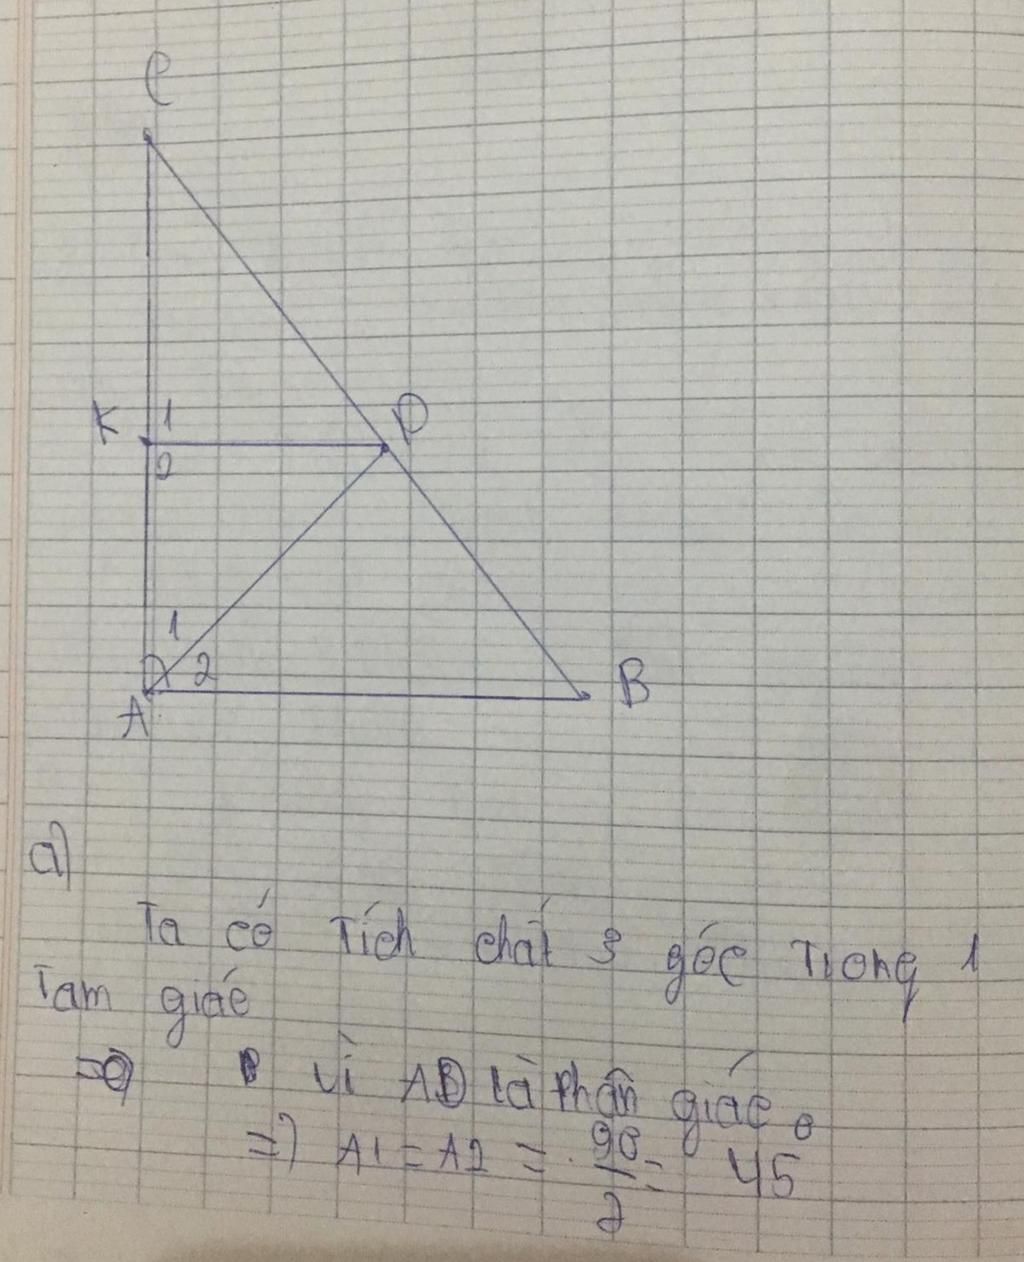 C
K 1 D
2
1
2
A B
a)
Ta có Tích chất 3 góc Trong 1
Tam giác
=>
vì AD là Phân giác
=> A1 = A2 = 90/2 = 45